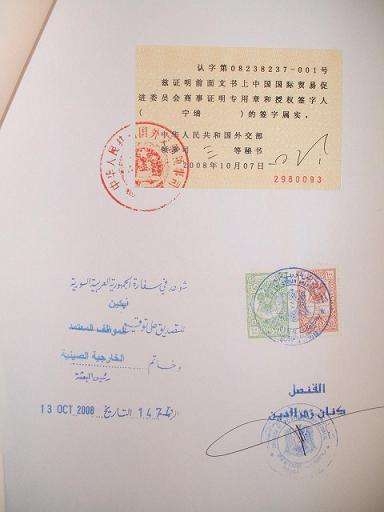 认字第08238237-001号
兹证明前面文书上中国国际贸易促
进委员会商事证明专用章和授权签字人
( 宁培 )的签字属实。
中华人民共和国外交部
三 等秘书
2008年10月07日
2980093
شوهد في سفارة الجمهورية العربية السورية
بكين
للتصديق على توقيع الموظف المعتمد
وخاتم الخارجية الصينية
رئيس البعثة
الرقم 147 التاريخ 13 OCT 2008
القنصل
كنان زهر الدين